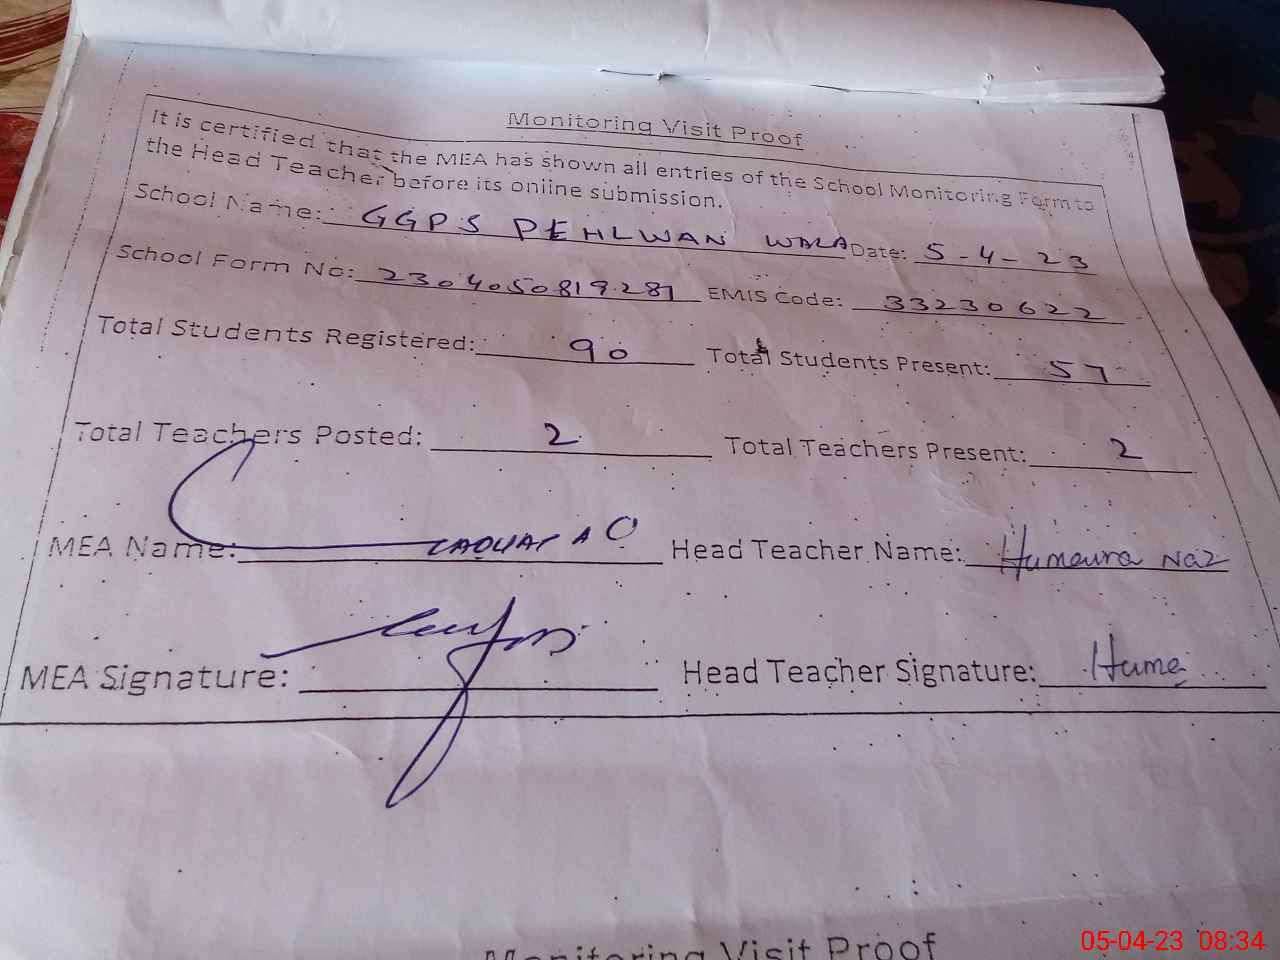 Monitoring Visit Proof
It is certified that the MEA has shown all entries of the School Monitoring Form to
the Head Teacher before its online submission.
School Name: GGPS PEHLWAN WALA Date: 5-4-23
School Form No: 2304050819281 EMIS Code: 33230622
Total Students Registered: 90 Total Students Present: 57
Total Teachers Posted: 2 Total Teachers Present: 2
MEA Name: Head Teacher Name: Humaura Naz
MEA Signature: Head Teacher Signature: Huma
Monitoring Visit Proof
05-04-23 08:34